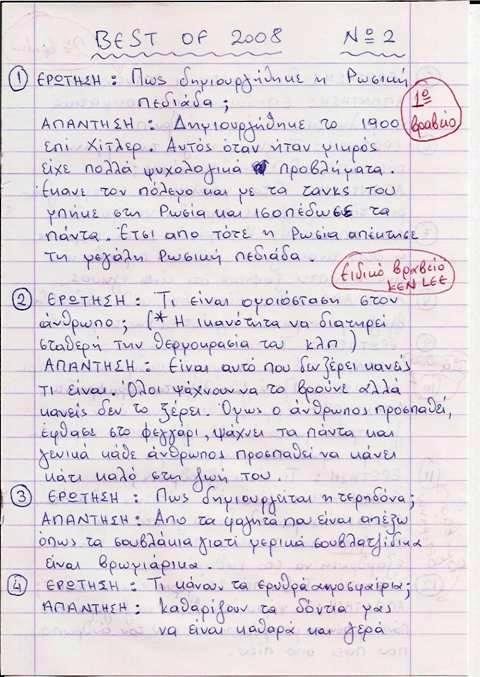 BEST OF 2008 Nº 2
① ΕΡΩΤΗΣΗ : Πως δημιουργήθηκε η Ρωσική
Πεδιάδα ;
1º βραβείο
ΑΠΑΝΤΗΣΗ : Δημιουργήθηκε το 1900
επί Χίτλερ. Αυτός όταν ήταν μικρός
είχε πολλά ψυχολογικά προβλήματα.
Έκανε τον πόλεμο και με τα τανκς του
μπήκε στη Ρωσία και ισοπέδωσε τα
πάντα. Έτσι απο τότε η Ρωσία απέκτησε
τη μεγάλη Ρωσική πεδιάδα.
Ειδικό βραβείο
KEN LEE
② ΕΡΩΤΗΣΗ : Τι είναι ομοιόσταση στον
άνθρωπο ; (* Η ικανότητα να διατηρεί
σταθερή την θερμοκρασία του κλπ)
ΑΠΑΝΤΗΣΗ : Είναι αυτό που δεν ξέρει κανείς
τι είναι. Όλοι ψάχνουν να το βρούνε αλλά
κανείς δεν το ξέρει. Όμως ο άνθρωπος προσπαθεί,
έφθασε στο φεγγάρι, ψάχνει τα πάντα και
γενικά κάθε άνθρωπος προσπαθεί να κάνει
κάτι καλό στη ζωή του.
③ ΕΡΩΤΗΣΗ : Πως δημιουργείται η τερηδόνα;
ΑΠΑΝΤΗΣΗ : Απο τα φαγητά που είναι απέξω
όπως τα σουβλάκια γιατί μερικά σουβλατζίδικα
είναι βρωμιάρικα.
④ ΕΡΩΤΗΣΗ : Τι κάνουν τα ερυθρά αιμοσφαίρια;
ΑΠΑΝΤΗΣΗ : Καθαρίζουν τα δόντια μας
να είναι καθαρά και γερά